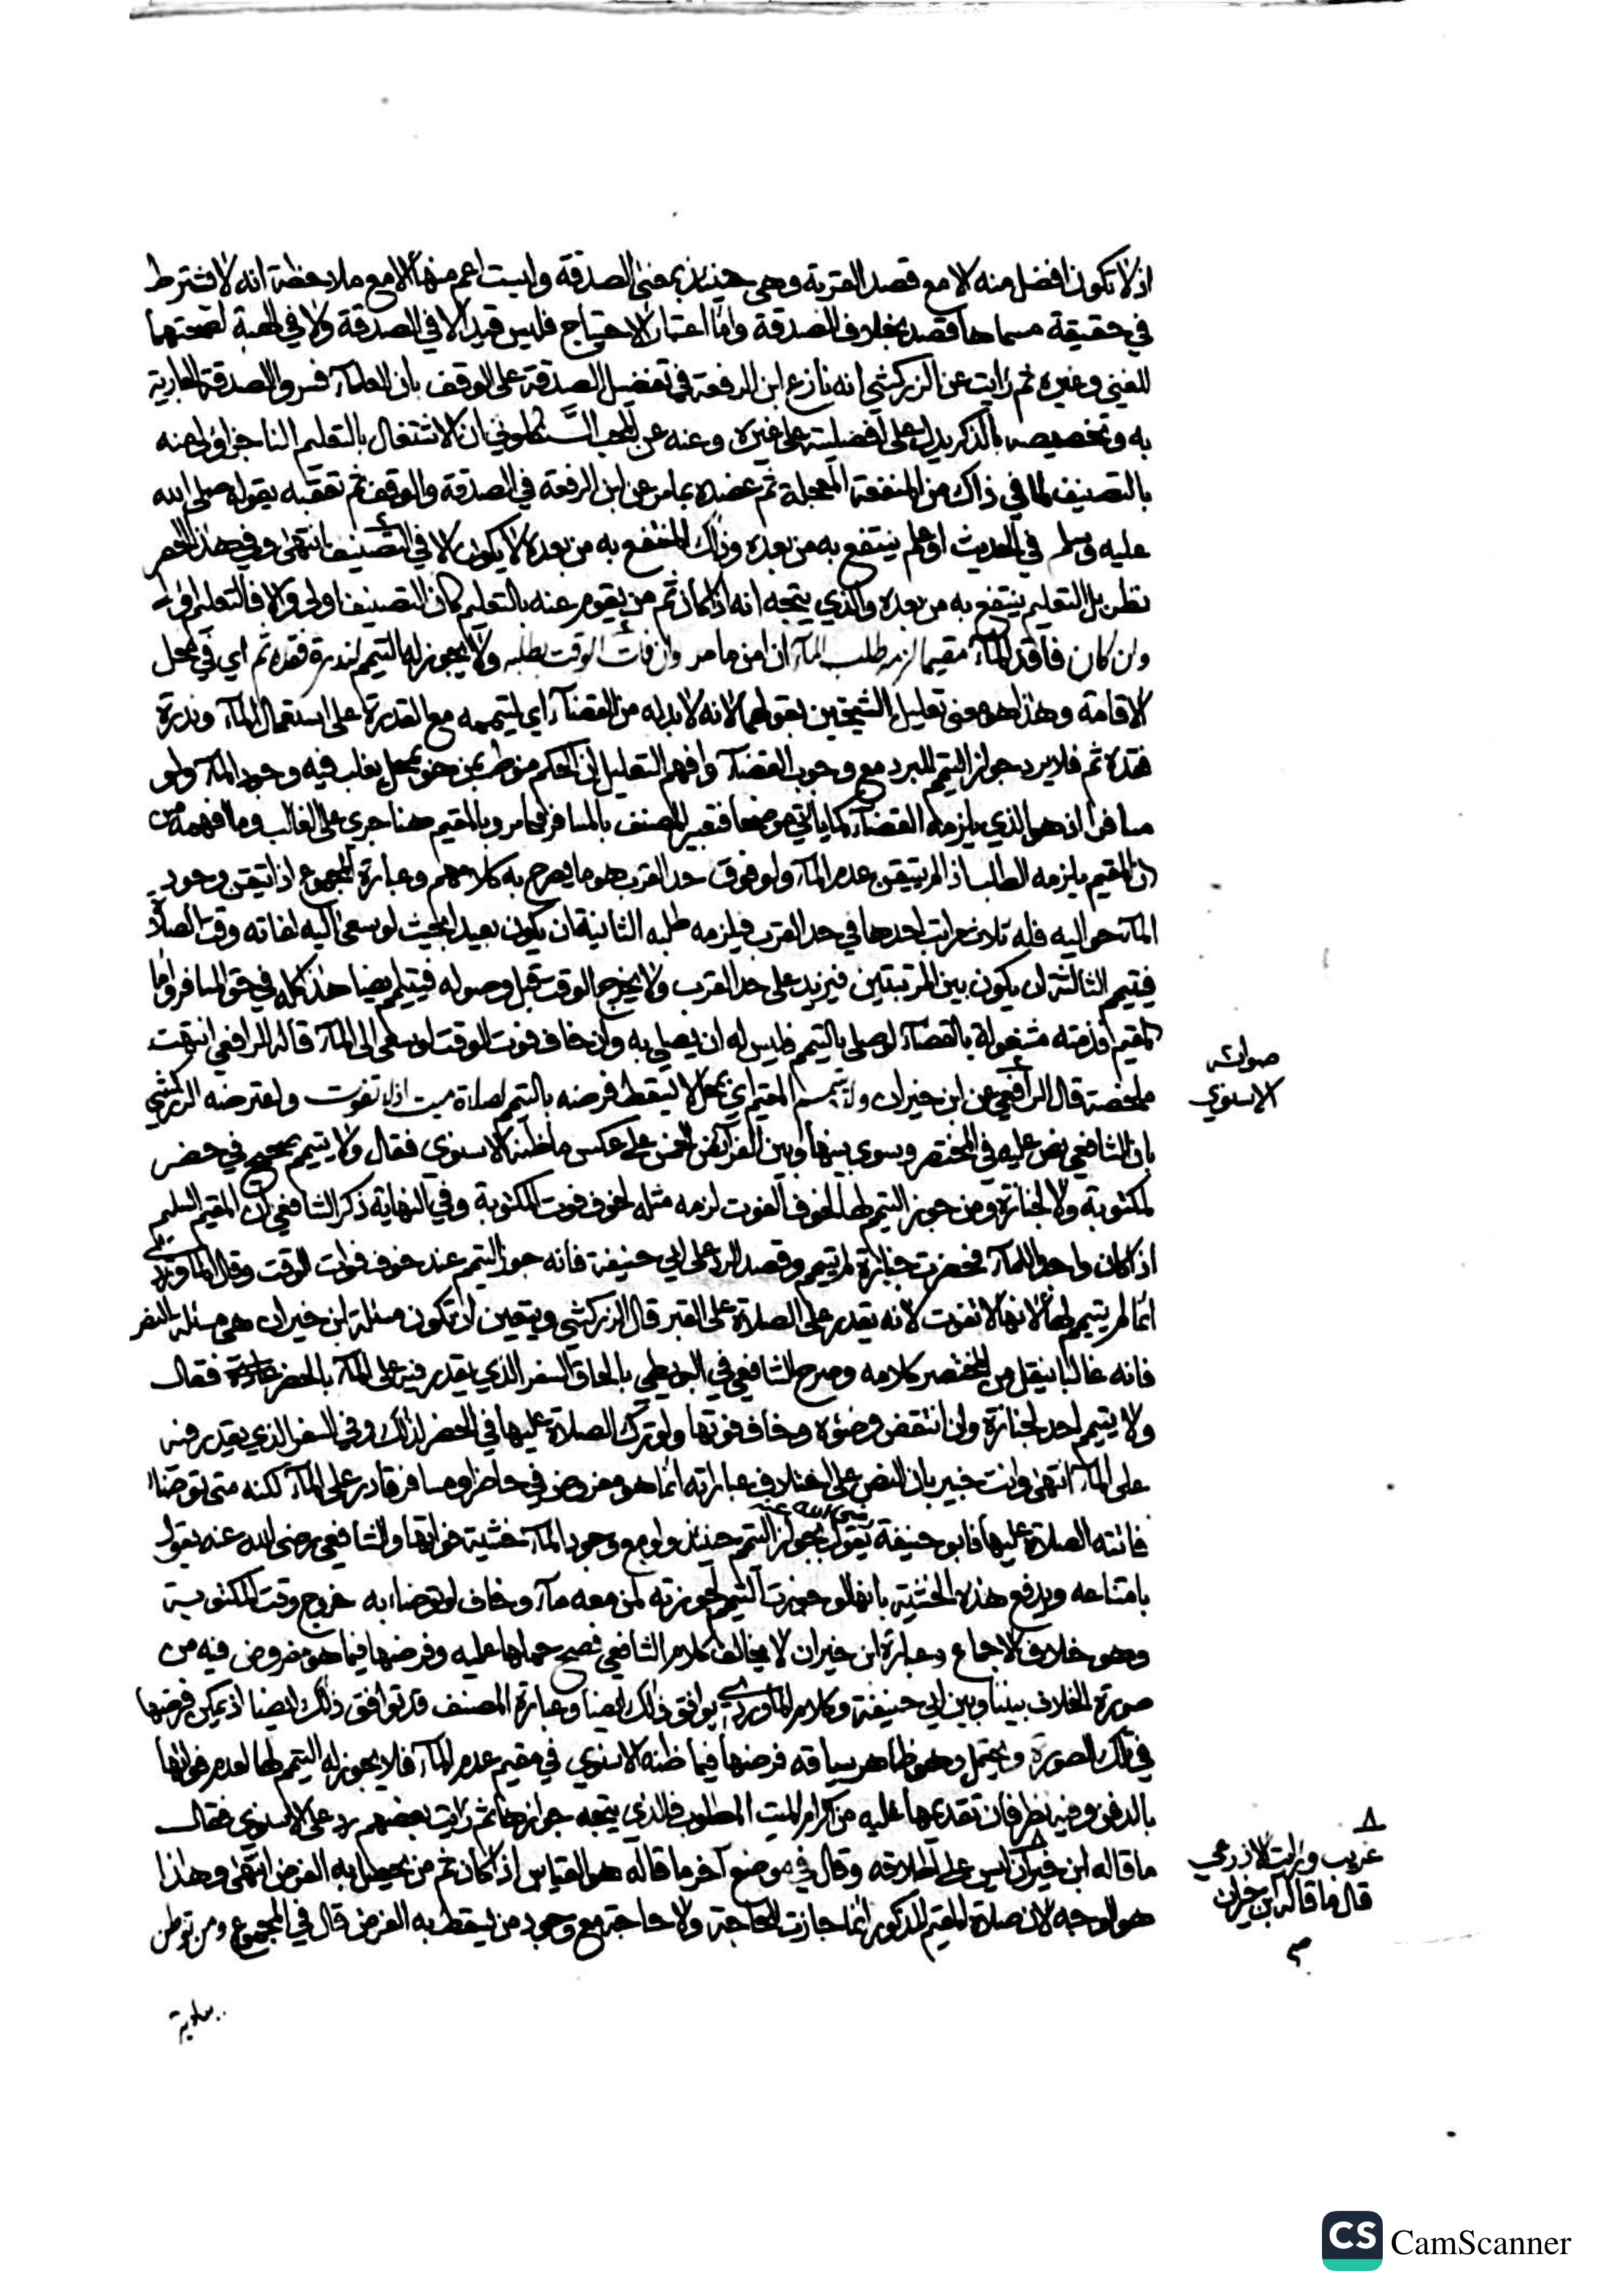 اذ لا تكون افضل منه الا مع قصد القربة وهي حينئذ بمعنى الصدقة وليست اعم منها الا مع ملاحظة انه لا يشترط
في حقيقة مسماها قصد بخلاف الصدقة واما اعتبار الاحتياج فليس قيدا لا في الصدقة ولا في الهبة لصحتهما
للغني وغيره ثم رايت عن الزركشي انه نازع ابن الرفعة في تفضيل الصدقة على الوقف بان العلماء فسروا الصدقة الجارية
به وتخصيصه بالذكر يدل على افضليته على غيره وعنه عن المجد السنكلوني ان الاشتغال بالتعليم الناجز اولى منه
بالتصنيف لما في ذاك من المنفعة المعجلة ثم عضده بما مر عن ابن الرفعة في الصدقة والوقف ثم تعقبه بقوله صلى الله
عليه وسلم في الحديث او علم ينتفع به من بعده وذاك المنتفع به من بعده لا يكون الا في التصنيف انتهى وفي هذا الحصر
نظر بل التعليم ينتفع به من بعده والذي يتجه انه اذا كان ثم من يقوم عنه بالتعليم كان التصنيف اولى والا فالتعليم اولى
وان كان فاقد الماء مقيما لزمه طلب الماء ان امن ما مر وان فات الوقت بطلبه ولا يجوز له التيمم لندرة فقده ثم اي في محل
الاقامة وهذا هو معنى تعليل الشيخين بقولهما لانه لا بد له من القضاء اي لتيممه مع القدرة على استعمال الماء وندرة
فقده ثم فلا يرد جواز التيمم للبرد مع وجوب القضاء وافهم التعليل ان الحكم منوط بمن هو بمحل يغلب فيه وجود الماء ولو
مسافرا اذ هو الذي يلزمه القضاء كما ياتي موضحا فتعبير المصنف بالمسافر فيما مر وبالمقيم هنا جري على الغالب وما افهمه من
ان المقيم يلزمه الطلب اذا لم يتيقن عدم الماء ولو فوق حد القرب هو ما يصرح به كلامهم وعبارة المجموع اذا تيقن وجود
الماء حواليه فله ثلاث مراتب احدها في حد القرب فيلزمه طلبه الثانية ان يكون بعيدا بحيث لو سعى اليه لفاته وقت الصلاة
فيتيمم الثالثة ان يكون بين المرتبتين فيزيد على حد القرب ولا يخرج الوقت قبل وصوله فيتيمم ايضا هذا كله في حق المسافر واما
المقيم فذمته مشغولة بالقضاء لو صلى بالتيمم فليس له ان يصلي به وان خاف فوت الوقت لو سعى الى الماء قاله الرافعي انتهت
ملخصة قال الرافعي عن ابن خيران ولا يتيمم المقيم اي بمحل لا يسقط فرضه بالتيمم لصلاة ميت اذ لا تفوت واعترضه الزركشي
صوابه
الاسنوي
بان الشافعي نص عليه في المختصر وسوى بينها وبين الفرائض الخمس على عكس ما ظنه الاسنوي فقال ولا يتيمم صحيح في حضر
لمكتوبة ولا لجنازة ومن جوز التيمم لها لخوف الفوت لزمه مثله لخوف فوت المكتوبة وفي النهاية ذكر الشافعي ان المقيم السليم
اذا كان واجدا للماء فحضرت جنازة لم يتيمم وقصد الرد على ابي حنيفة فانه جوز التيمم عند خوف فوات الوقت وقال الماوردي
انما لم يتيمم لها لانها لا تفوت لانه يقدر على الصلاة على القبر قال الزركشي ويتعين ان تكون مسئلة ابن خيران هي مسئلة النص
فانه غالبا ينقل من المختصر كلامه وصرح الشافعي في البويطي بالحاق السفر الذي يقدر فيه على الماء بالحضر فقال
ولا يتيمم احد لجنازة وان انتقض وضوءه وخاف فوتها ولو ترك الصلاة عليها في الحضر لذلك وفي السفر الذي يقدر فيه
على الماء انتهى وانت خبير بان النص على اختلاف عباراته انما هو مفروض في حاضر ومسافر قادر على الماء لكنه متى توضا
فاتته الصلاة عليها فابو حنيفة رضي الله عنه يقول بجواز التيمم حينئذ ولو مع وجود الماء خشية فواتها والشافعي رضي الله عنه يقول
بامتناعه ويدفع هذه الخشية بانه لو جوزت التيمم لجوزته لمن معه ماء وخاف لو توضا به خروج وقت المكتوبة
وهو خلاف الاجماع وعبارة ابن خيران لا يخالف كلام الشافعي فصح حملها عليه وفرضها فيما هو مفروض فيه من
صورة الخلاف بيننا وبين ابي حنيفة وكلام الماوردي يوافق ذلك ايضا وعبارة المصنف قد توافق ذلك ايضا اذ يمكن فرضها
في تلك الصورة ويحتمل وهو ظاهر سياقه فرضها فيما ظنه الاسنوي في مقيم عدم الماء فلا يجوز له التيمم لها لعدم فواتها
بالدفن وفيه نظر فان تقديمها عليه من اكرام الميت المطلوب فالذي يتجه جوازها ثم رايت بعضهم رد على الاسنوي فقال
ما قاله ابن خيران ليس على اطلاقه وقال في موضع آخر ما قاله هو القياس اذا كان ثم من يحصل به الفرض انتهى وهذا
غريب ورايت الاذرعي
قال ما قاله ابن خيران
صح
هو الوجه لان صلاة المقيم المذكور انما جازت للحاجة ولا حاجة مع وجود من يسقط به الفرض قال في المجموع ومن توطن
CS CamScanner